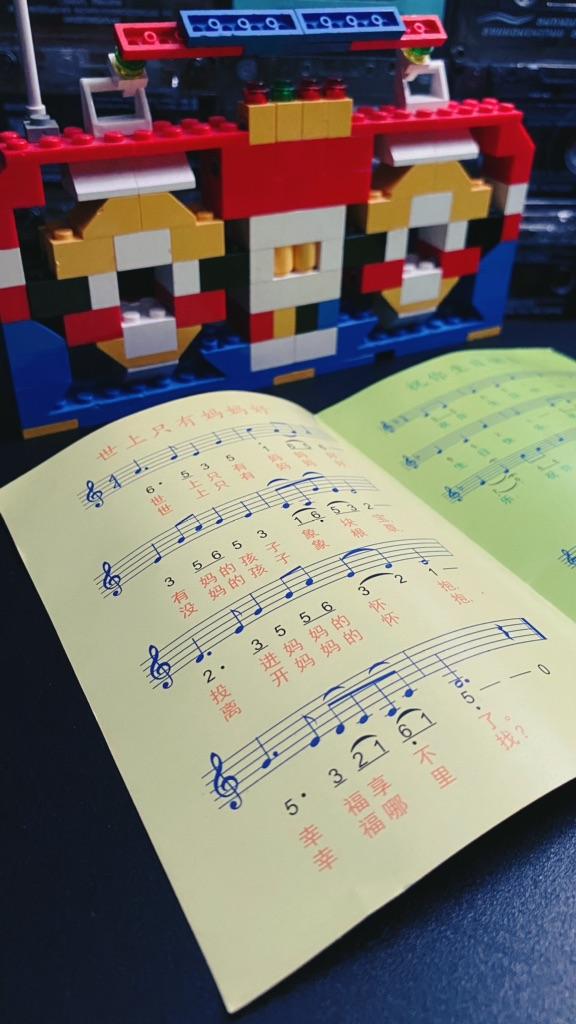 世上只有妈妈好
6· 5 3 5 1 6 5 6 —
世 上只 有 妈 妈 好
世 上只 有 妈 妈 好
3 5 6 5 3 1 6 5 3 2 —
有 妈的孩子 象 块 宝
没 妈的孩子 象 根 草
2· 3 5 5 6 3 2 1 —
投 进妈妈的 怀 抱,
离 开妈妈的 怀 抱,
5· 3 2 1 6 1 5 — — 0
幸 福享 不 了。
幸 福哪 里 找?
祝你生日